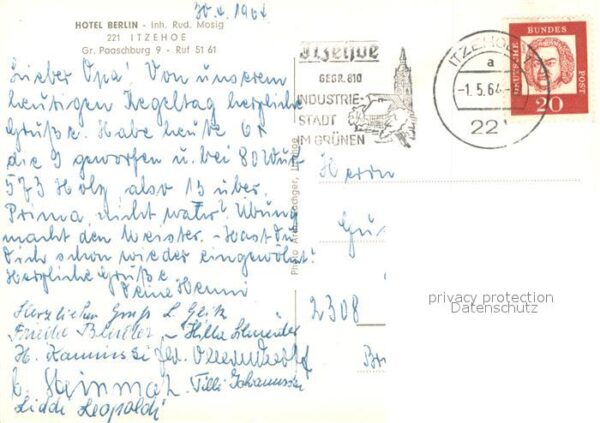 30.4.1964
HOTEL BERLIN - Inh. Rud. Mosig
221 ITZEHOE
Gr. Paaschburg 9 - Ruf 51 61
Lieber Opa! Von unserem
heutigen Kegeltag herzliche
Grüße. Habe heute 6 x
die 9 geworfen u. bei 80 Wurf
573 Holz also 13 über.
Prima, nicht wahr? Übung
macht den Meister. - Hast Du
Dich schon wieder eingewöhnt?
Herzliche Grüße
Deine Henni
Herzlichen Gruß L. Geik
Frieda - Hilla Schneider
H. Kaminski
Steinmatz Tilli Johannsen
Lidde Leopoldi
Photo
Itzehoe
GEGR. 810
INDUSTRIE-
STADT
IM GRÜNEN
ITZEHOE
a
-1.5.64
221
DEUTSCHE
BUNDES
POST
20
Herrn
2308
privacy protection
Datenschutz